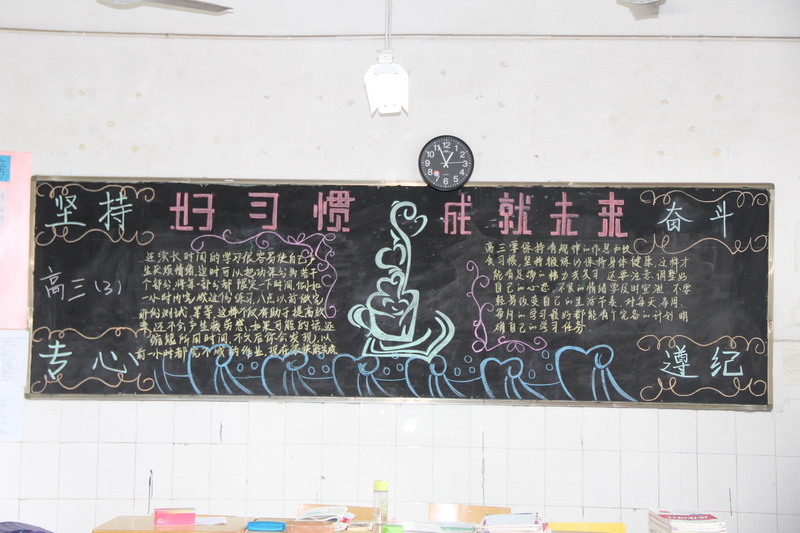 好习惯 成就未来
坚持
奋斗
高三(3)
专心
遵纪
连续长时间的学习很容易使自己产
生厌烦情绪,这时可以把功课分为若干
个部分,将每一部分都限定一个时间,例如
一小时内完成这份练习,八点以前做完
那份测试等等,这样不仅有助于提高效
率,还不会产生疲劳感,如果可能的话,逐
步缩短所用时间,不久后你会发现,以
前一小时都完不成的作业,现在
高三要保持有规律的作息和饮
食习惯,坚持锻炼以保持身体健康,这样才
能有足够的精力去复习,还要注意调整
自己的心态,不良的情绪要及时宣泄,不要
轻易改变自己的生活节奏,对每天每周
每月的学习最好都能有个完备的计划,明
确自己的学习任务.
12